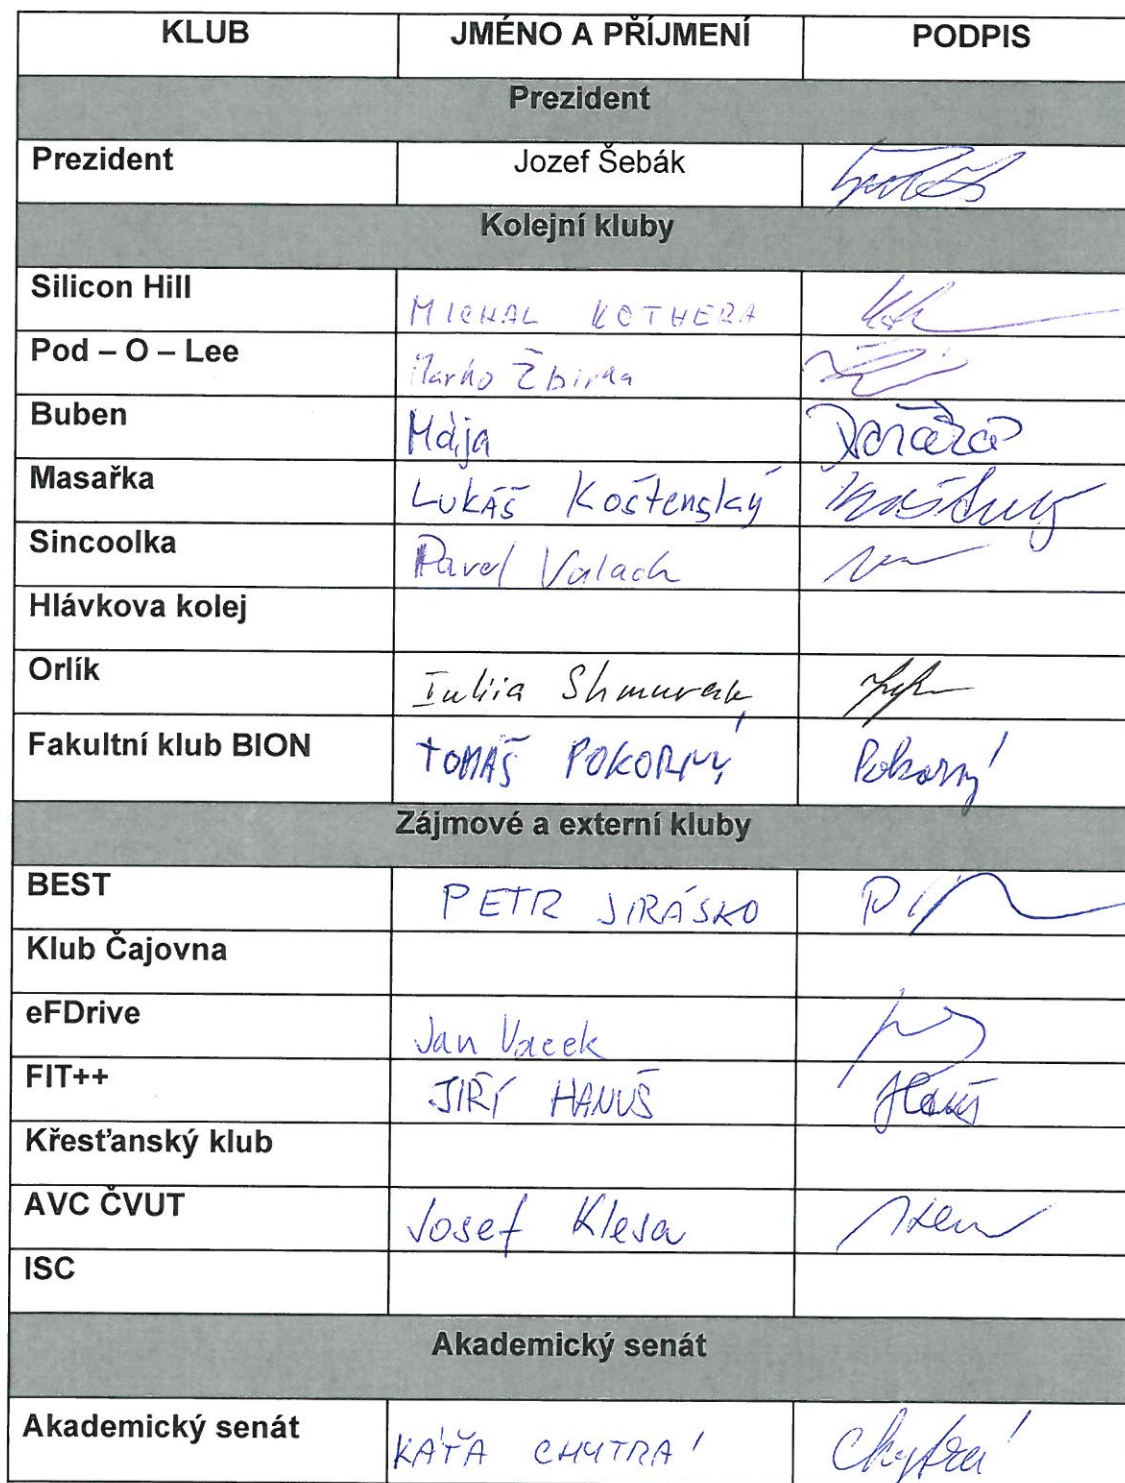 KLUB JMÉNO A PŘÍJMENÍ PODPIS
Prezident
Prezident Jozef Šebák
Kolejní kluby
Silicon Hill MICHAL KOTHERA
Pod – O – Lee Marko Žbirka
Buben Mája
Masařka LUKÁŠ Koštenský
Sincoolka Pavel Valach
Hlávkova kolej
Orlík Iuliia Shmurak
Fakultní klub BION TOMÁŠ POKORNÝ Pokorný
Zájmové a externí kluby
BEST PETR JIRÁSKO
Klub Čajovna
eFDrive Jan Vacek
FIT++ JIŘÍ HANUŠ Hanuš
Křesťanský klub
AVC ČVUT Josef Klesa
ISC
Akademický senát
Akademický senát KÁŤA CHYTRÁ Chytrá